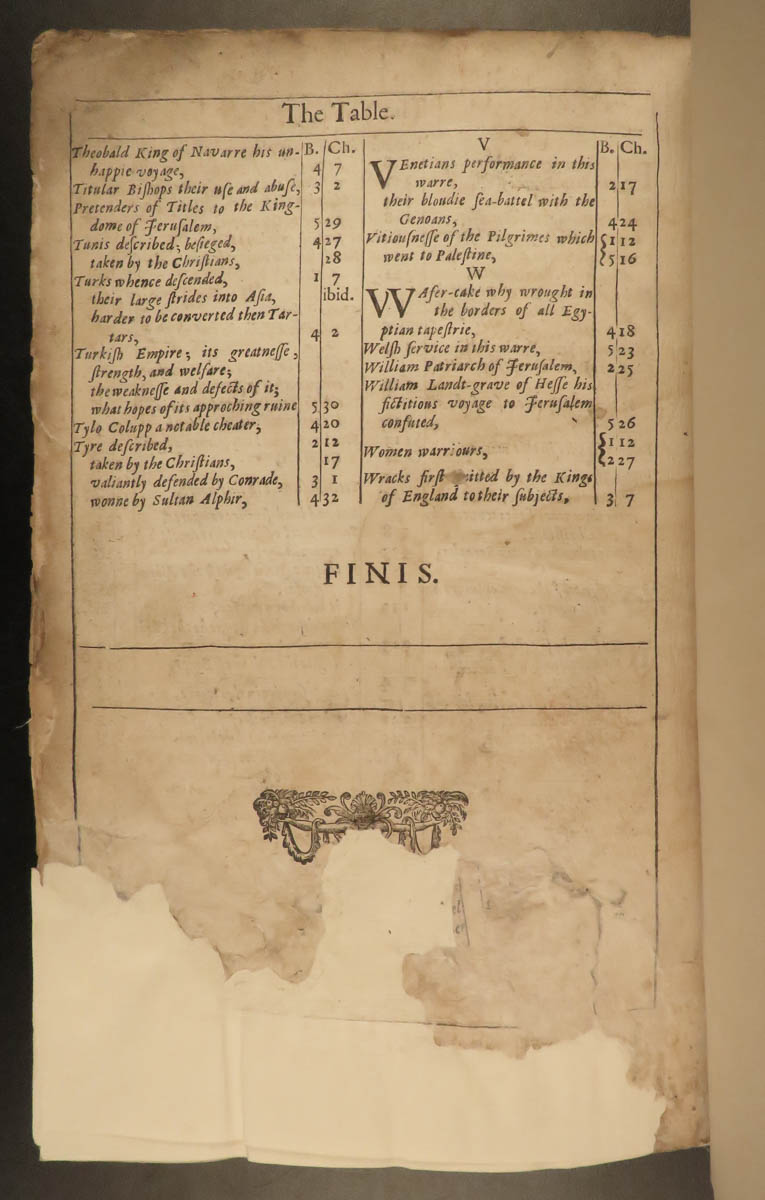 The Table.
B. Ch.
Theobald King of Navarre his un-
happie voyage, 4 7
Titular Biſhops their uſe and abuſe, 3 2
Pretenders of Titles to the King-
dome of Jeruſalem, 5 29
Tunis deſcribed; beſieged, 4 27
taken by the Chriſtians, 28
Turks whence deſcended, 1 7
their large ſtrides into Aſia, ibid.
harder to be converted then Tar-
tars, 4 2
Turkiſh Empire; its greatneſſe,
ſtrength, and welfare;
the weakneſſe and defects of it;
what hopes of its approching ruine 5 30
Tylo Colupp a notable cheater, 4 20
Tyre deſcribed, 2 12
taken by the Chriſtians, 17
valiantly defended by Conrade, 3 1
wonne by Sultan Alphir, 4 32
V B. Ch.
VEnetians performance in this
warre, 2 17
their bloudie ſea-battel with the
Genoans, 4 24
Vitiouſneſſe of the Pilgrimes which { 1 12
went to Paleſtine, { 5 16
W
WAfer-cake why wrought in
the borders of all Egy-
ptian tapeſtrie, 4 18
Welſh ſervice in this warre, 5 23
William Patriarch of Jeruſalem, 2 25
William Landt-grave of Heſſe his
fictitious voyage to Jeruſalem
confuted, 5 26
Women warriours, { 1 12
{ 2 27
Wracks firſt by the Kings
of England to their ſubjects, 3 7
FINIS.